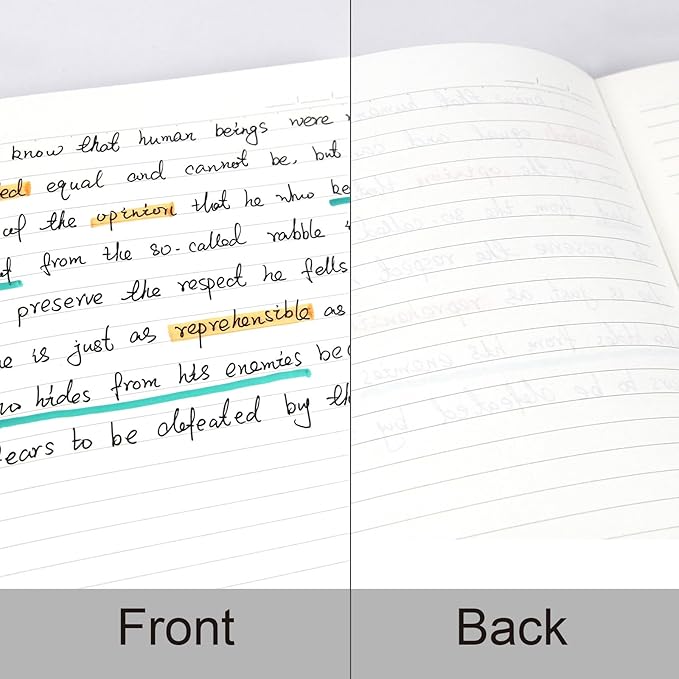 know that human beings were
ed equal and cannot be, but
of the opinion that he who be
from the so-called rabble
preserve the respect he fells
e is just as reprehensible as
o hides from his enemies bec
ears to be defeated by th
Front
Back